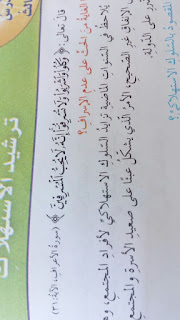 ترشيد الاستهلاك
قال تعالى: ﴿وَكُلُوا وَاشْرَبُوا وَلَا تُسْرِفُوا إِنَّهُ لَا يُحِبُّ الْمُسْرِفِينَ﴾ (سورة الأعراف، الآية: ٣١)
الغاية من الحث على عدم الإسراف؟
يلاحظ في السنوات الماضية تزايد السلوك الاستهلاكي لأفراد المجتمع،
الإنفاق غير الصحيح، الأمر الذي يشكل عبئًا على صعيد الأسرة والمجتمع
على الدولة.
المقصود بالسلوك الاستهلاكي؟